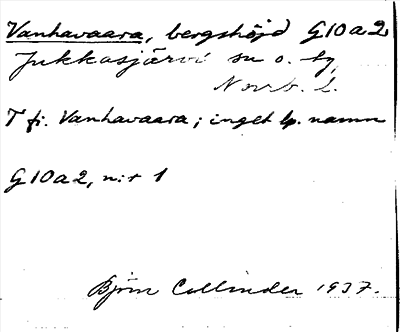 Vanhavaara, bergshöjd G10a2
Jukkasjärvi sn o. tg,
Norrb. l.
T fi. Vanhavaara; inget lp. namn
G10a2, n:r 1
Björn Collinder 1937.